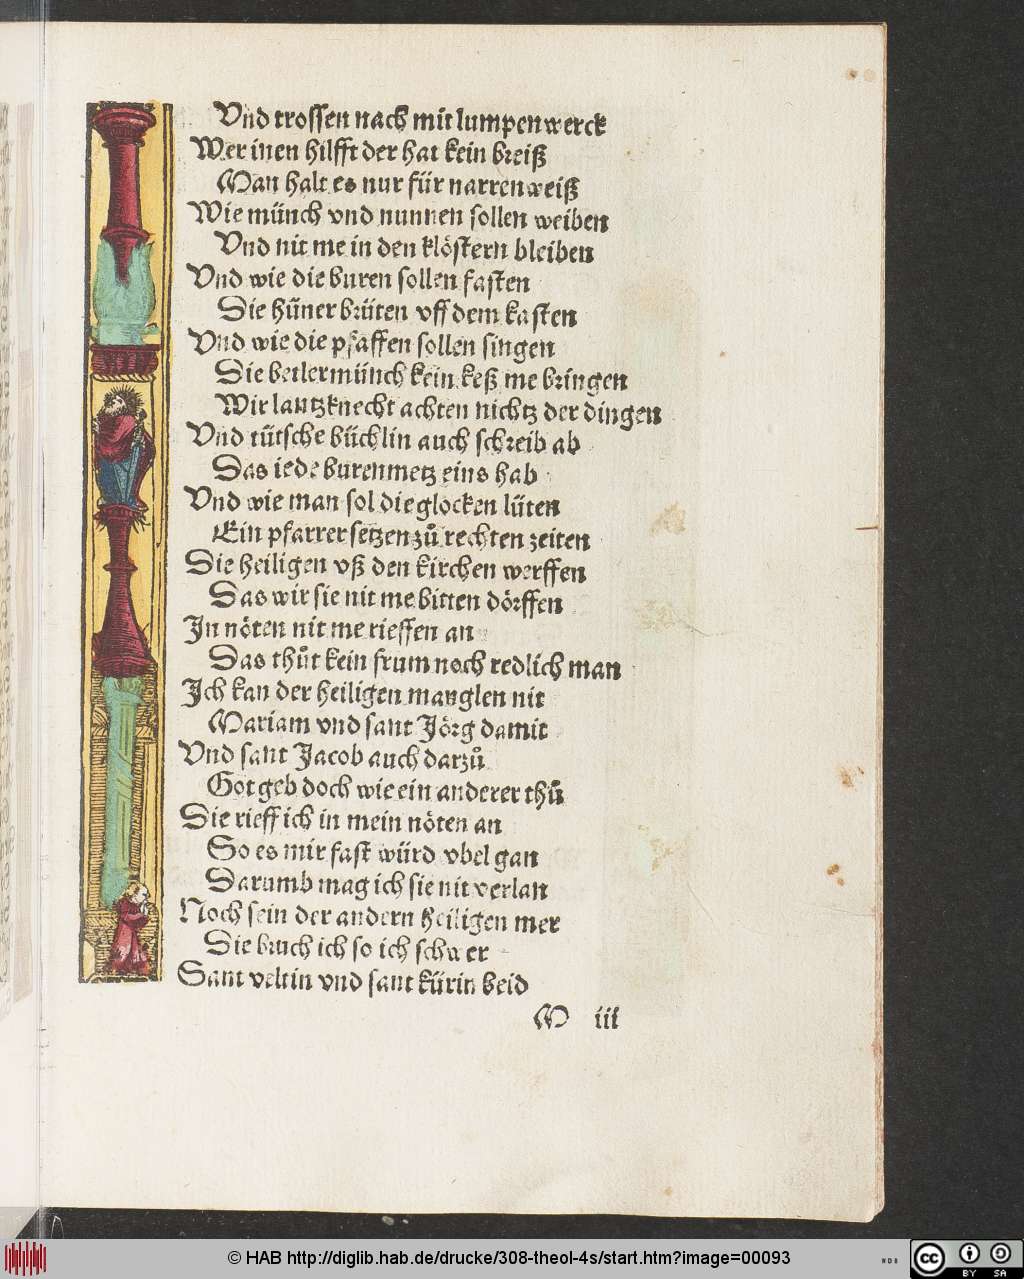 Vnd trossen nach mit lumpenwerck
Wer inen hilfft der hat kein breiß
Man halt es nur für narrenweiß
Wie münch vnd nunnen sollen weiben
Vnd nit me in den klöstern bleiben
Vnd wie die buren sollen fasten
Die hüner brüten vff dem kasten
Vnd wie die pfaffen sollen singen
Die betlermünch kein keß me bringen
Wir lantzknecht achten nichtz der dingen
Vnd tütsche büchlin auch schreib ab
Das iede burenmetz eins hab
Vnd wie man sol die glocken lüten
Ein pfarrer setzen zů rechten zeiten
Die heiligen vß den kirchen werffen
Das wir sie nit me bitten dörffen
In nöten nit me rieffen an
Das thůt kein frum noch redlich man
Ich kan der heiligen manglen nit
Mariam vnd sant Jörg damit
Vnd sant Jacob auch darzů
Got geb doch wie ein anderer thů
Die rieff ich in mein nöten an
So es mir fast würd vbel gan
Darumb mag ich sie nit verlan
Noch sein der andern heiligen mer
Die bruch ich so ich schwer
Sant veltin vnd sant kürin beid
M iii
© HAB http://diglib.hab.de/drucke/308-theol-4s/start.htm?image=00093
WDB
cc BY SA